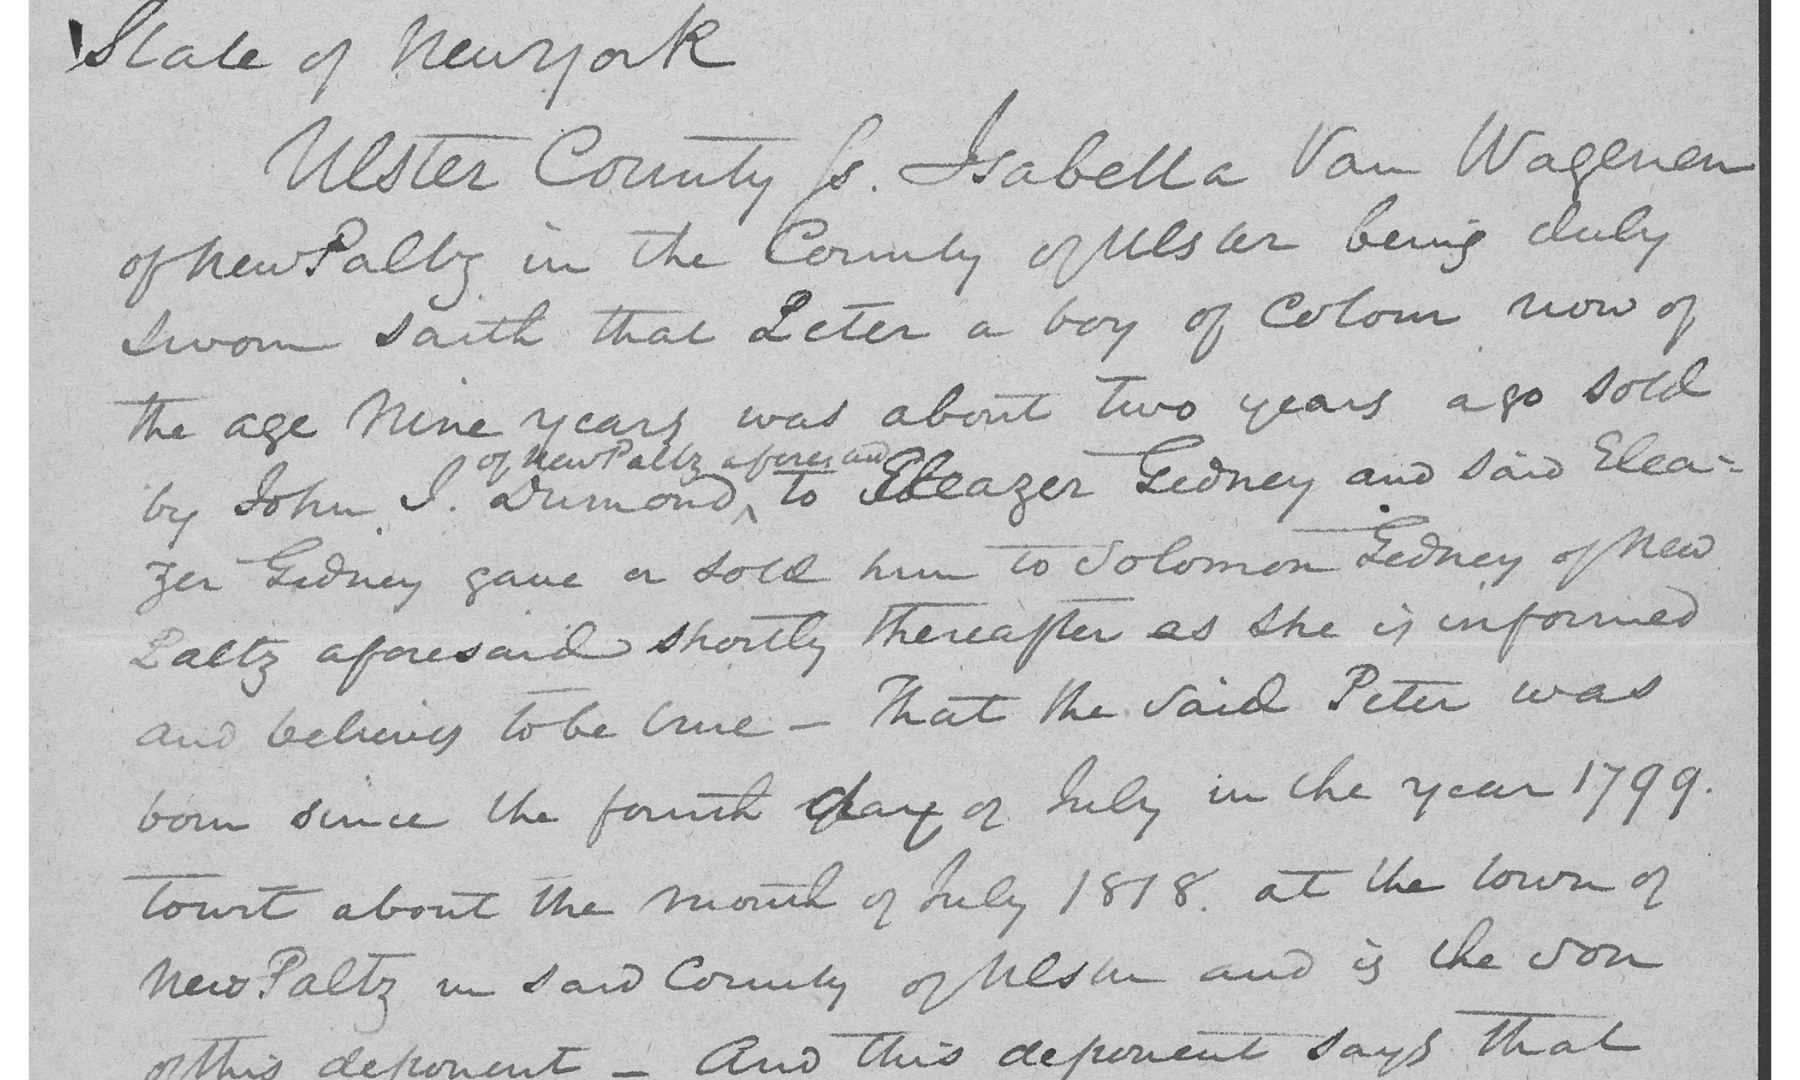 State of New York
Ulster County ss. Isabella Van Wagenen
of New Paltz in the County of Ulster being duly
sworn saith that Peter a boy of Colour now of
the age Nine years was about two years ago sold
of New Paltz aforesaid
by John I. Dumond, to Eleazer Gedney and said Elea-
zer Gedney gave or sold him to Solomon Gedney of New
Paltz aforesaid shortly thereafter as she is informed
and believes to be true – That the said Peter was
born since the fourth day of July in the year 1799.
towit about the month of July 1818. at the town of
New Paltz in said County of Ulster and is the son
of this deponent – And this deponent says that